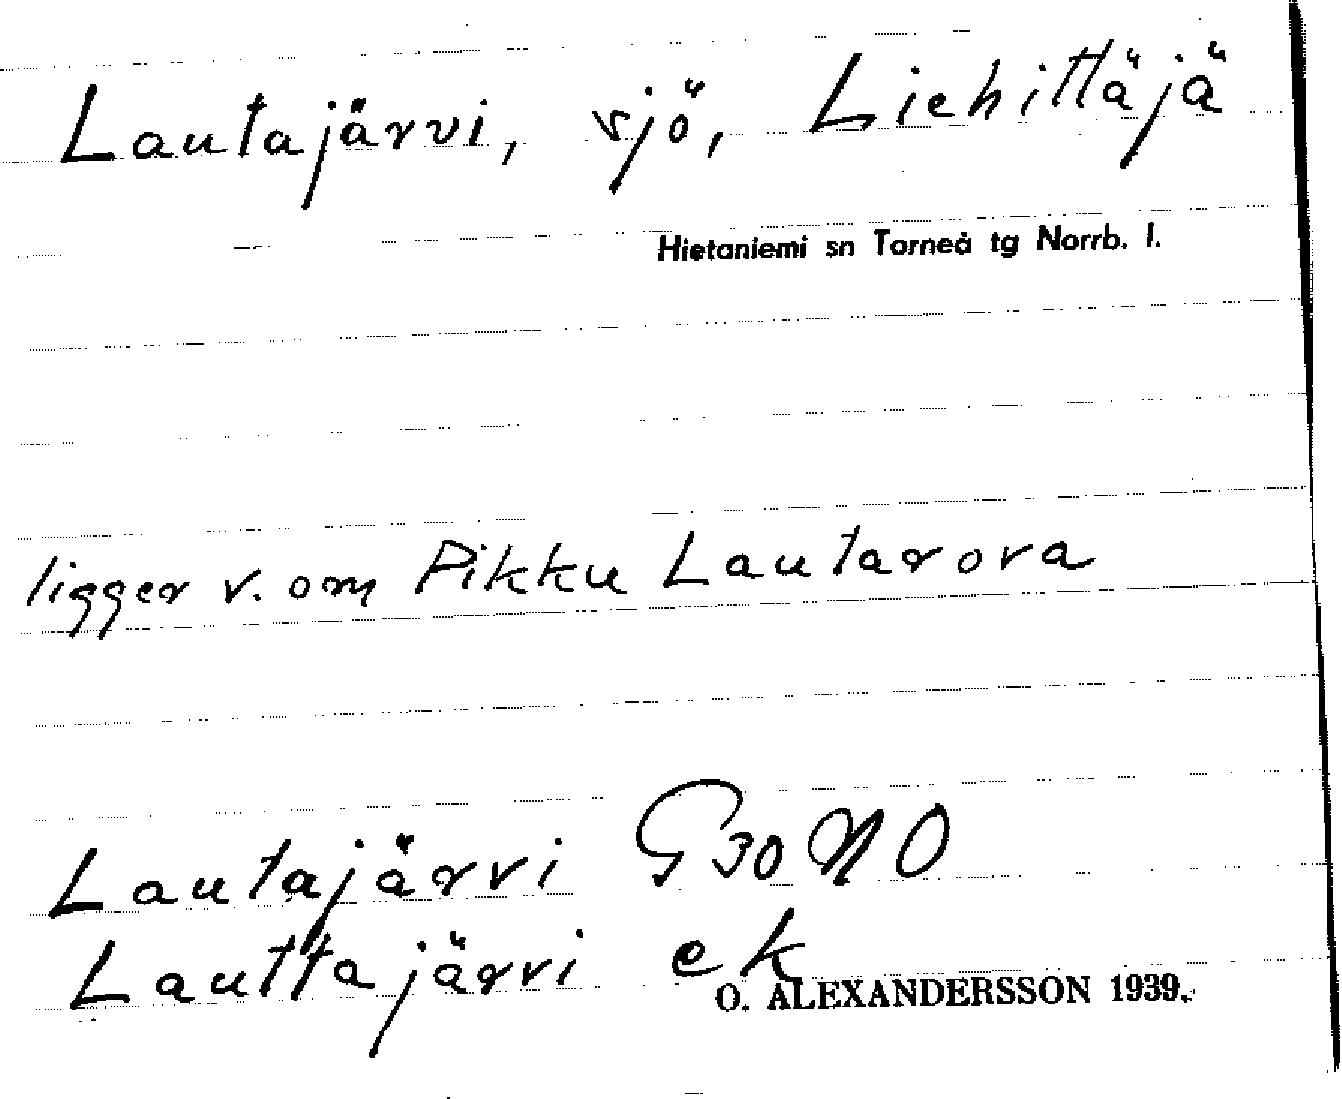 Lautajärvi, sjö, Liehittäjä
Hietaniemi sn Torneå tg Norrb. l.
ligger v. om Pikku Lautarova
Lautajärvi G30NO
Lauttajärvi ek
O. ALEXANDERSSON 1939.